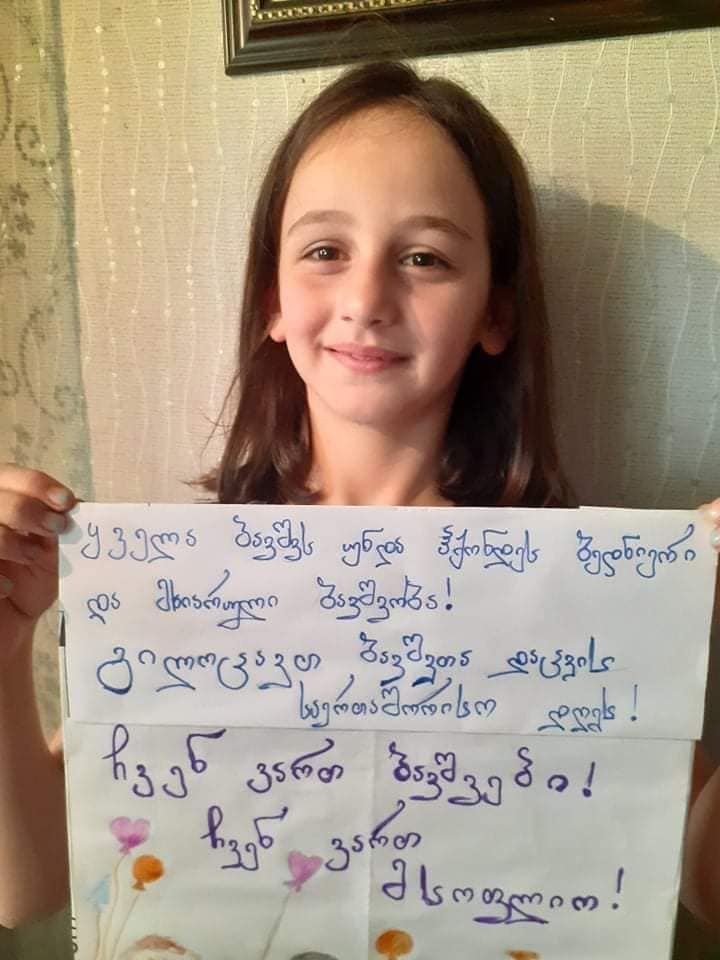 ყველა ბავშვს უნდა ჰქონდეს ბედნიერი
და მხიარული ბავშვობა!
გილოცავთ ბავშვთა დაცვის
საერთაშორისო დღეს!
ჩვენ ვართ ბავშვები!
ჩვენ ვართ
მსოფლიო!